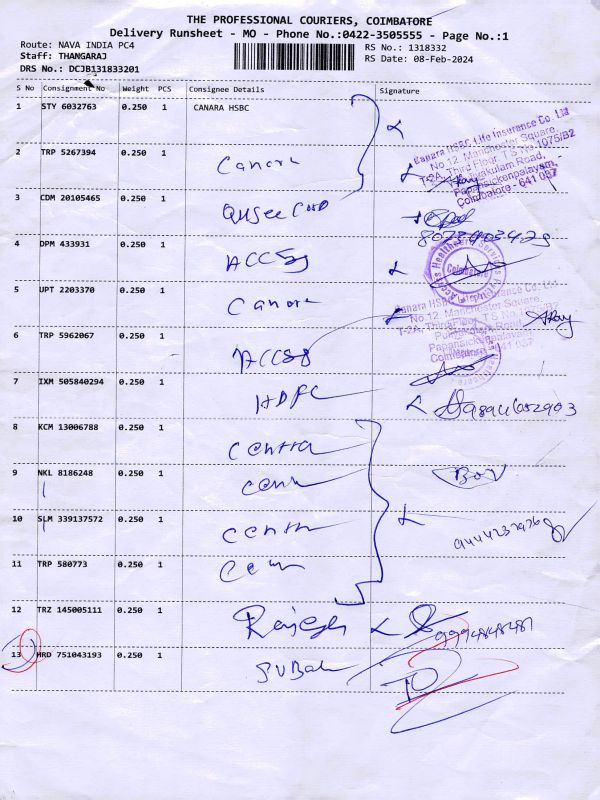 THE PROFESSIONAL COURIERS, COIMBATORE
Delivery Runsheet - MO - Phone No.:0422-3505555 - Page No.:1
Route: NAVA INDIA PC4
RS No.: 1318332
Staff: THANGARAJ
RS Date: 08-Feb-2024
DRS No.: DCJB131833201
S No Consignment No Weight PCS Consignee Details Signature
1 STY 6032763 0.250 1 CANARA HSBC
Canara HSBC Life Insurance Co. Ltd
No.12, Manchester Square,
T-2A, Third Floor, T S No.1075/B2
Puliakulam Road,
Papanaickenpalayam,
Coimbatore - 641 037
2 TRP 5267394 0.250 1 Canara
3 CDM 20105465 0.250 1
4 DPM 433931 0.250 1
Access Healthcare Services
Coimbatore
5 UPT 2203370 0.250 1 Canara
Canara HSBC Life Insurance Co. Ltd
No.12, Manchester Square,
T-2A, Third Floor, T S No.1075/B2
Papanaickenpalayam,
Coimbatore - 641 037
6 TRP 5962067 0.250 1
7 IXM 505840294 0.250 1 HDFC
8 KCM 13006788 0.250 1
9 NKL 8186248 0.250 1
10 SLM 339137572 0.250 1
11 TRP 580773 0.250 1
12 TRZ 145005111 0.250 1 Rajesh 9994848487
13 HRD 751043193 0.250 1